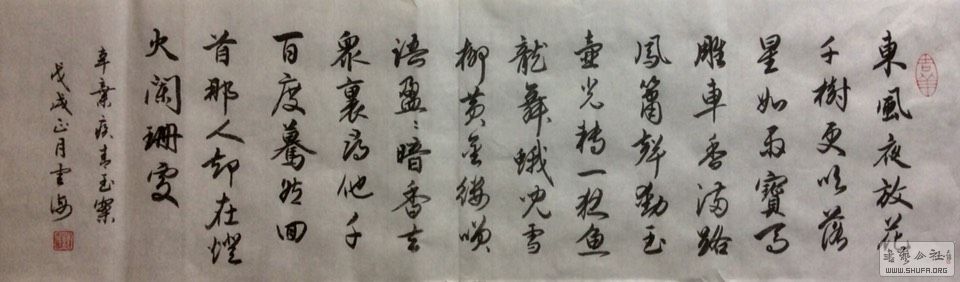 東風夜放花
千樹更吹落
星如雨寶馬
雕車香滿路
鳳簫聲動玉
壺光轉一夜魚
龍舞蛾兒雪
柳黃金縷唤
語盈〻暗香去
衆裏尋他千
百度驀然回
首那人却在燈
火闌珊處
辛棄疾青玉案
戊戌正月雲海
書藝公社
WWW.SHUFA.ORG